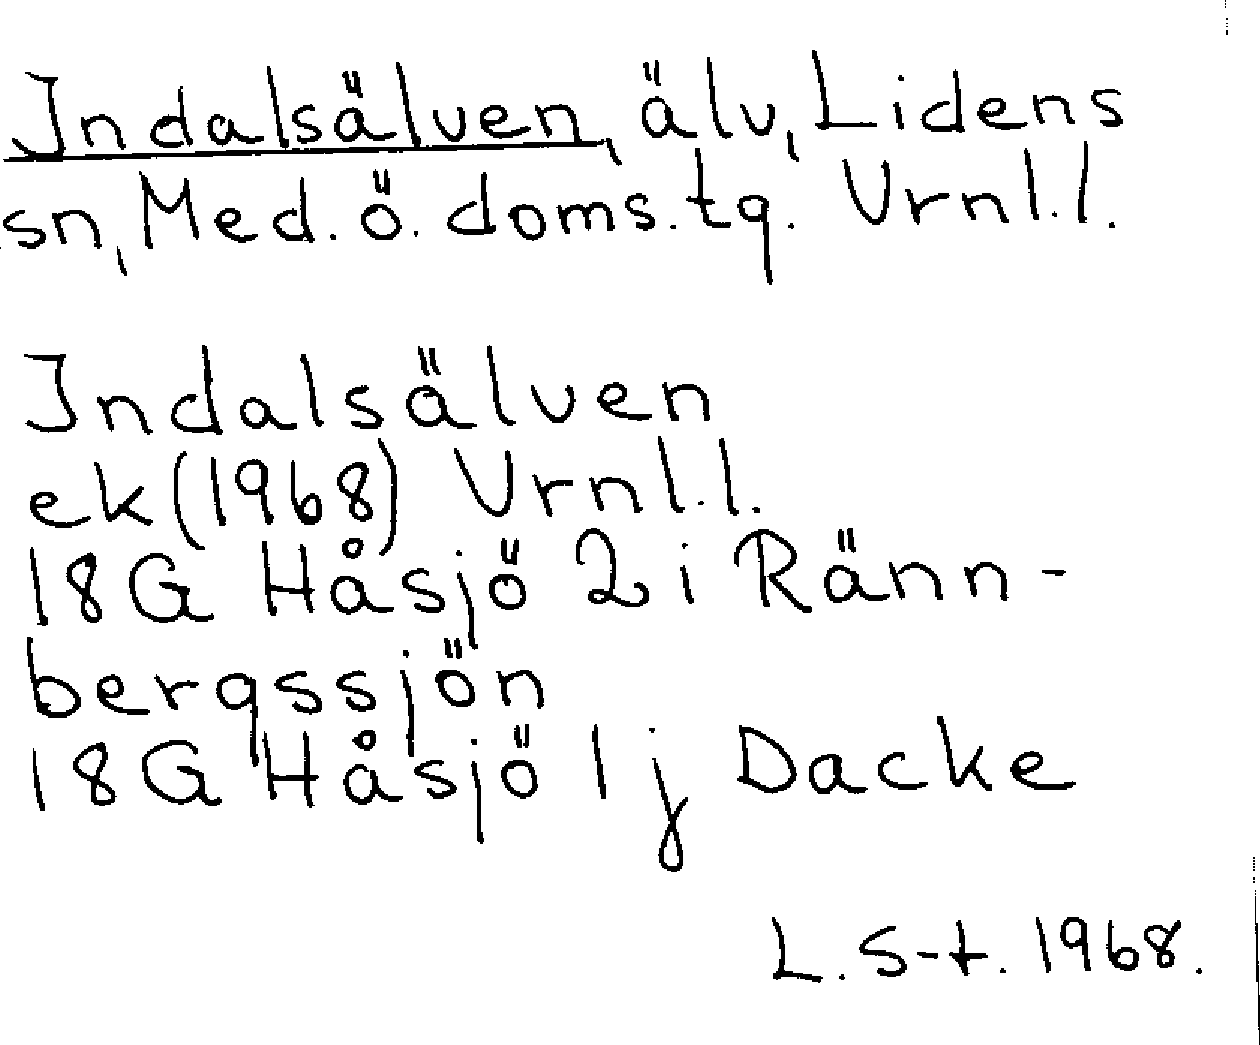 Indalsälven, älv, Lidens
sn, Med. ö. doms. tg. Vrnl.l.
Indalsälven
ek (1968) Vrnl.l.
18G Håsjö 2 i Ränn-
bergssjön
18G Håsjö 1 j Dacke
L. S-t. 1968.